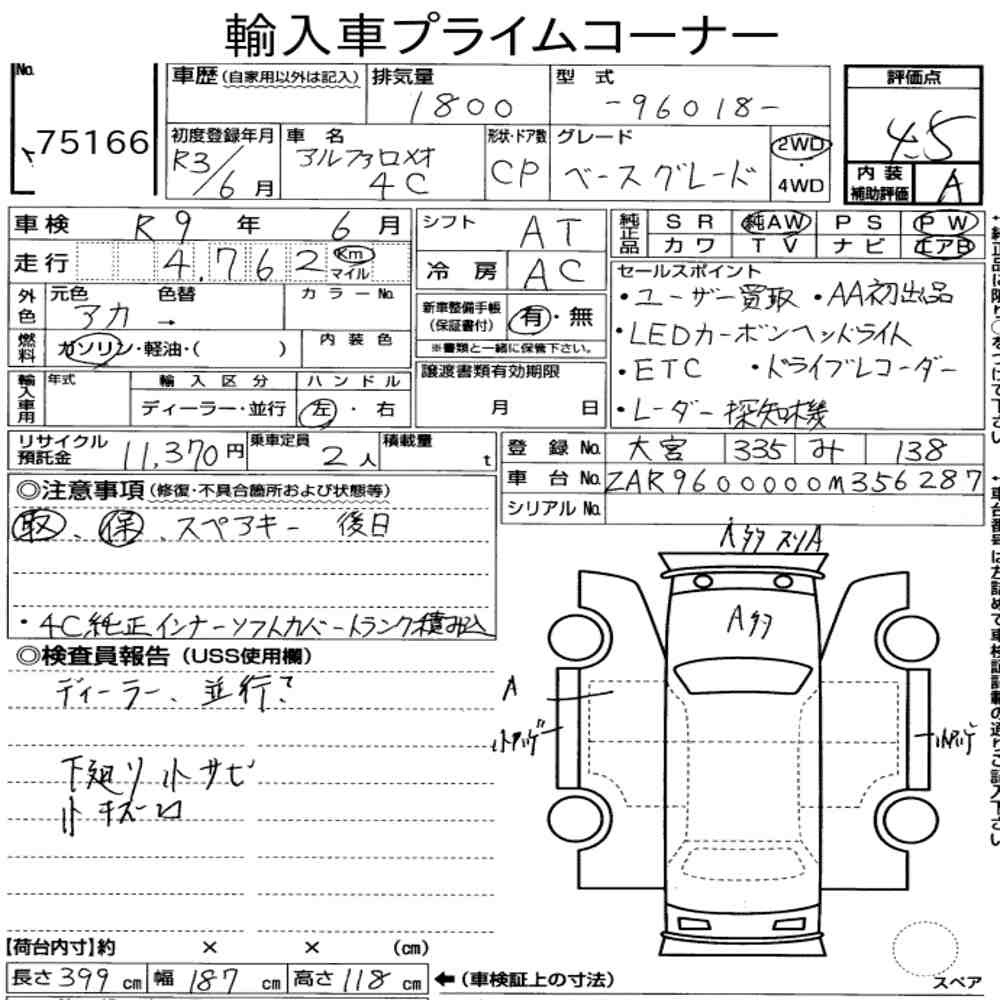 輸入車プライムコーナー
No. 75166
車歴(自家用以外は記入) 排気量 1800 型式 -96018-
初度登録年月 R3/6月 車名 アルファロメオ 4C 形状・ドア数 CP グレード ベースグレード 2WD・4WD
評価点 4.5
内装補助評価 A
車検 R9年 6月
走行 4.762 Km マイル
外色 元色 アカ → 色替 カラーNo.
燃料 ガソリン・軽油・( ) 内装色
輸入車用 年式 輸入区分 ディーラー・並行 ハンドル 左・右
シフト AT
冷房 AC
新車整備手帳(保証書付) 有・無
※書類と一緒に保管下さい。
譲渡書類有効期限 月 日
純正品 SR 純AW PS PW
カワ TV ナビ エアB
セールスポイント
・ユーザー買取 ・AA初出品
・LEDカーボンヘッドライト
・ETC ・ドライブレコーダー
・レーダー探知機
リサイクル預託金 11,370円 乗車定員 2人 積載量 t
登録No. 大宮 335 み 138
車台No. ZAR9600000M356287
シリアルNo.
◎注意事項(修復・不具合箇所および状態等)
取、保、スペアキー 後日
・4C純正インナーソフトカバートランク積み込
◎検査員報告(USS使用欄)
ディーラー、並行?
下廻り小サビ
小キズ
A多 スリA
A多
A
小アゲ
【荷台内寸】約 × × (cm)
長さ 399 cm 幅 187 cm 高さ 118 cm ←(車検証上の寸法)
スペア